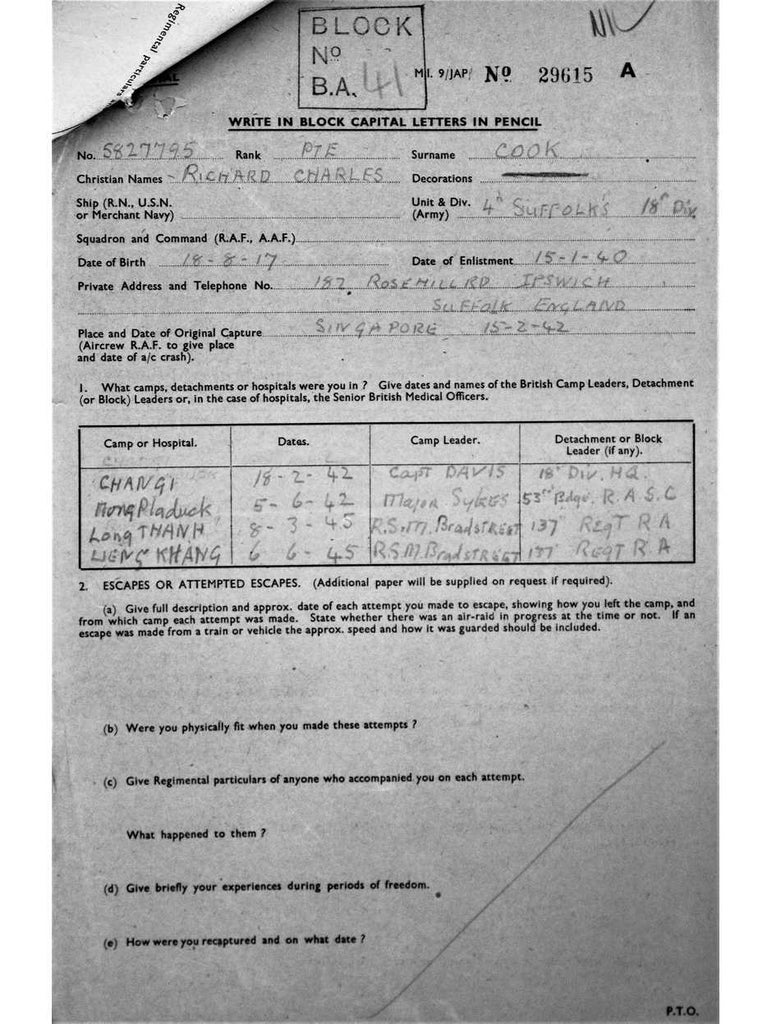 Regimental particulars
BLOCK
Nº
B.A. 41
M.I. 9/JAP/ Nº 29615 A
WRITE IN BLOCK CAPITAL LETTERS IN PENCIL
No. 5827795 Rank PTE Surname COOK
Christian Names - RICHARD CHARLES Decorations
Ship (R.N., U.S.N. or Merchant Navy)
Unit & Div. (Army) 4th SUFFOLKS 18th Div.
Squadron and Command (R.A.F., A.A.F.)
Date of Birth 18-8-17 Date of Enlistment 15-1-40
Private Address and Telephone No. 187. ROSEHILL RD IPSWICH
SUFFOLK ENGLAND
Place and Date of Original Capture SINGAPORE 15-2-42
(Aircrew R.A.F. to give place
and date of a/c crash).
1. What camps, detachments or hospitals were you in ? Give dates and names of the British Camp Leaders, Detachment
(or Block) Leaders or, in the case of hospitals, the Senior British Medical Officers.
Camp or Hospital. Dates. Camp Leader. Detachment or Block Leader (if any).
CHANGI 18-2-42 Capt DAVIS 18th DIV. HQ.
Nong Pladuck 5-6-42 Major Sykes 53rd Bdge. R.A.S.C
Long THANH 8-3-45 R.S.M. BradSTREET 137th RegT R A
LIENG KHANG 6 6-45 R.S.M BradSTREET 137th RegT R.A
2. ESCAPES OR ATTEMPTED ESCAPES. (Additional paper will be supplied on request if required).
(a) Give full description and approx. date of each attempt you made to escape, showing how you left the camp, and
from which camp each attempt was made. State whether there was an air-raid in progress at the time or not. If an
escape was made from a train or vehicle the approx. speed and how it was guarded should be included.
(b) Were you physically fit when you made these attempts ?
(c) Give Regimental particulars of anyone who accompanied you on each attempt.
What happened to them ?
(d) Give briefly your experiences during periods of freedom.
(e) How were you recaptured and on what date ?
P.T.O.